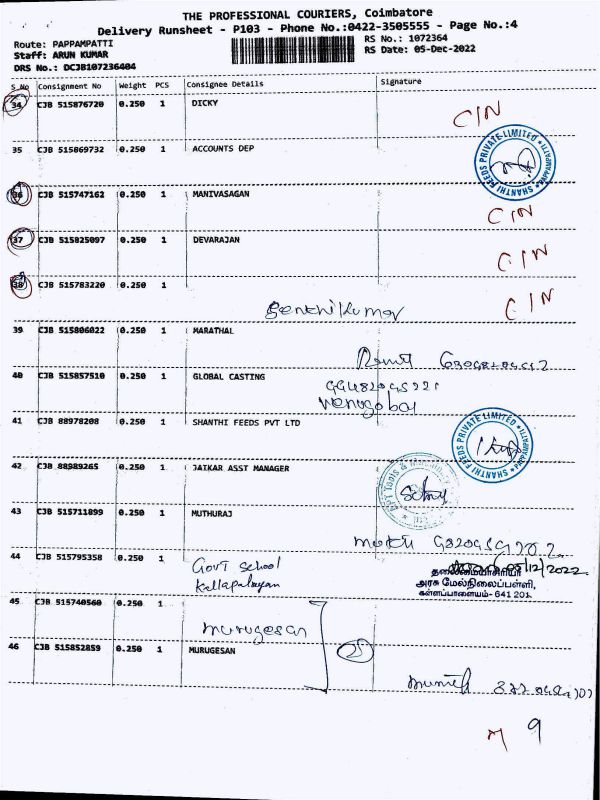 THE PROFESSIONAL COURIERS, Coimbatore
Delivery Runsheet - P103 - Phone No.:0422-3505555 - Page No.:4
Route: PAPPAMPATTI RS No.: 1072364
Staff: ARUN KUMAR RS Date: 05-Dec-2022
DRS No.: DCJB107236404
S.No Consignment No Weight PCS Consignee Details Signature
34 CJB 515876720 0.250 1 DICKY CIN
35 CJB 515869732 0.250 1 ACCOUNTS DEP
SHANTHI FEEDS PRIVATE LIMITED PAPPAMPATTI
36 CJB 515747162 0.250 1 MANIVASAGAN CIN
37 CJB 515825097 0.250 1 DEVARAJAN CIN
38 CJB 515783220 0.250 1 CIN
Senthilkumar
39 CJB 515806022 0.250 1 MARATHAL
40 CJB 515857510 0.250 1 GLOBAL CASTING
Venugobal
41 CJB 88978208 0.250 1 SHANTHI FEEDS PVT LTD
SHANTHI FEEDS PRIVATE LIMITED PAPPAMPATTI
42 CJB 88989265 0.250 1 JAIKAR ASST MANAGER
43 CJB 515711899 0.250 1 MUTHURAJ
44 CJB 515795358 0.250 1 Govt School
Kallapalayam
தலைமையாசிரியர் 05/12/2022
அரசு மேல்நிலைப்பள்ளி,
கள்ளப்பாளையம்- 641 201.
45 CJB 515740560 0.250 1
Murugesan
46 CJB 515852859 0.250 1 MURUGESAN
9